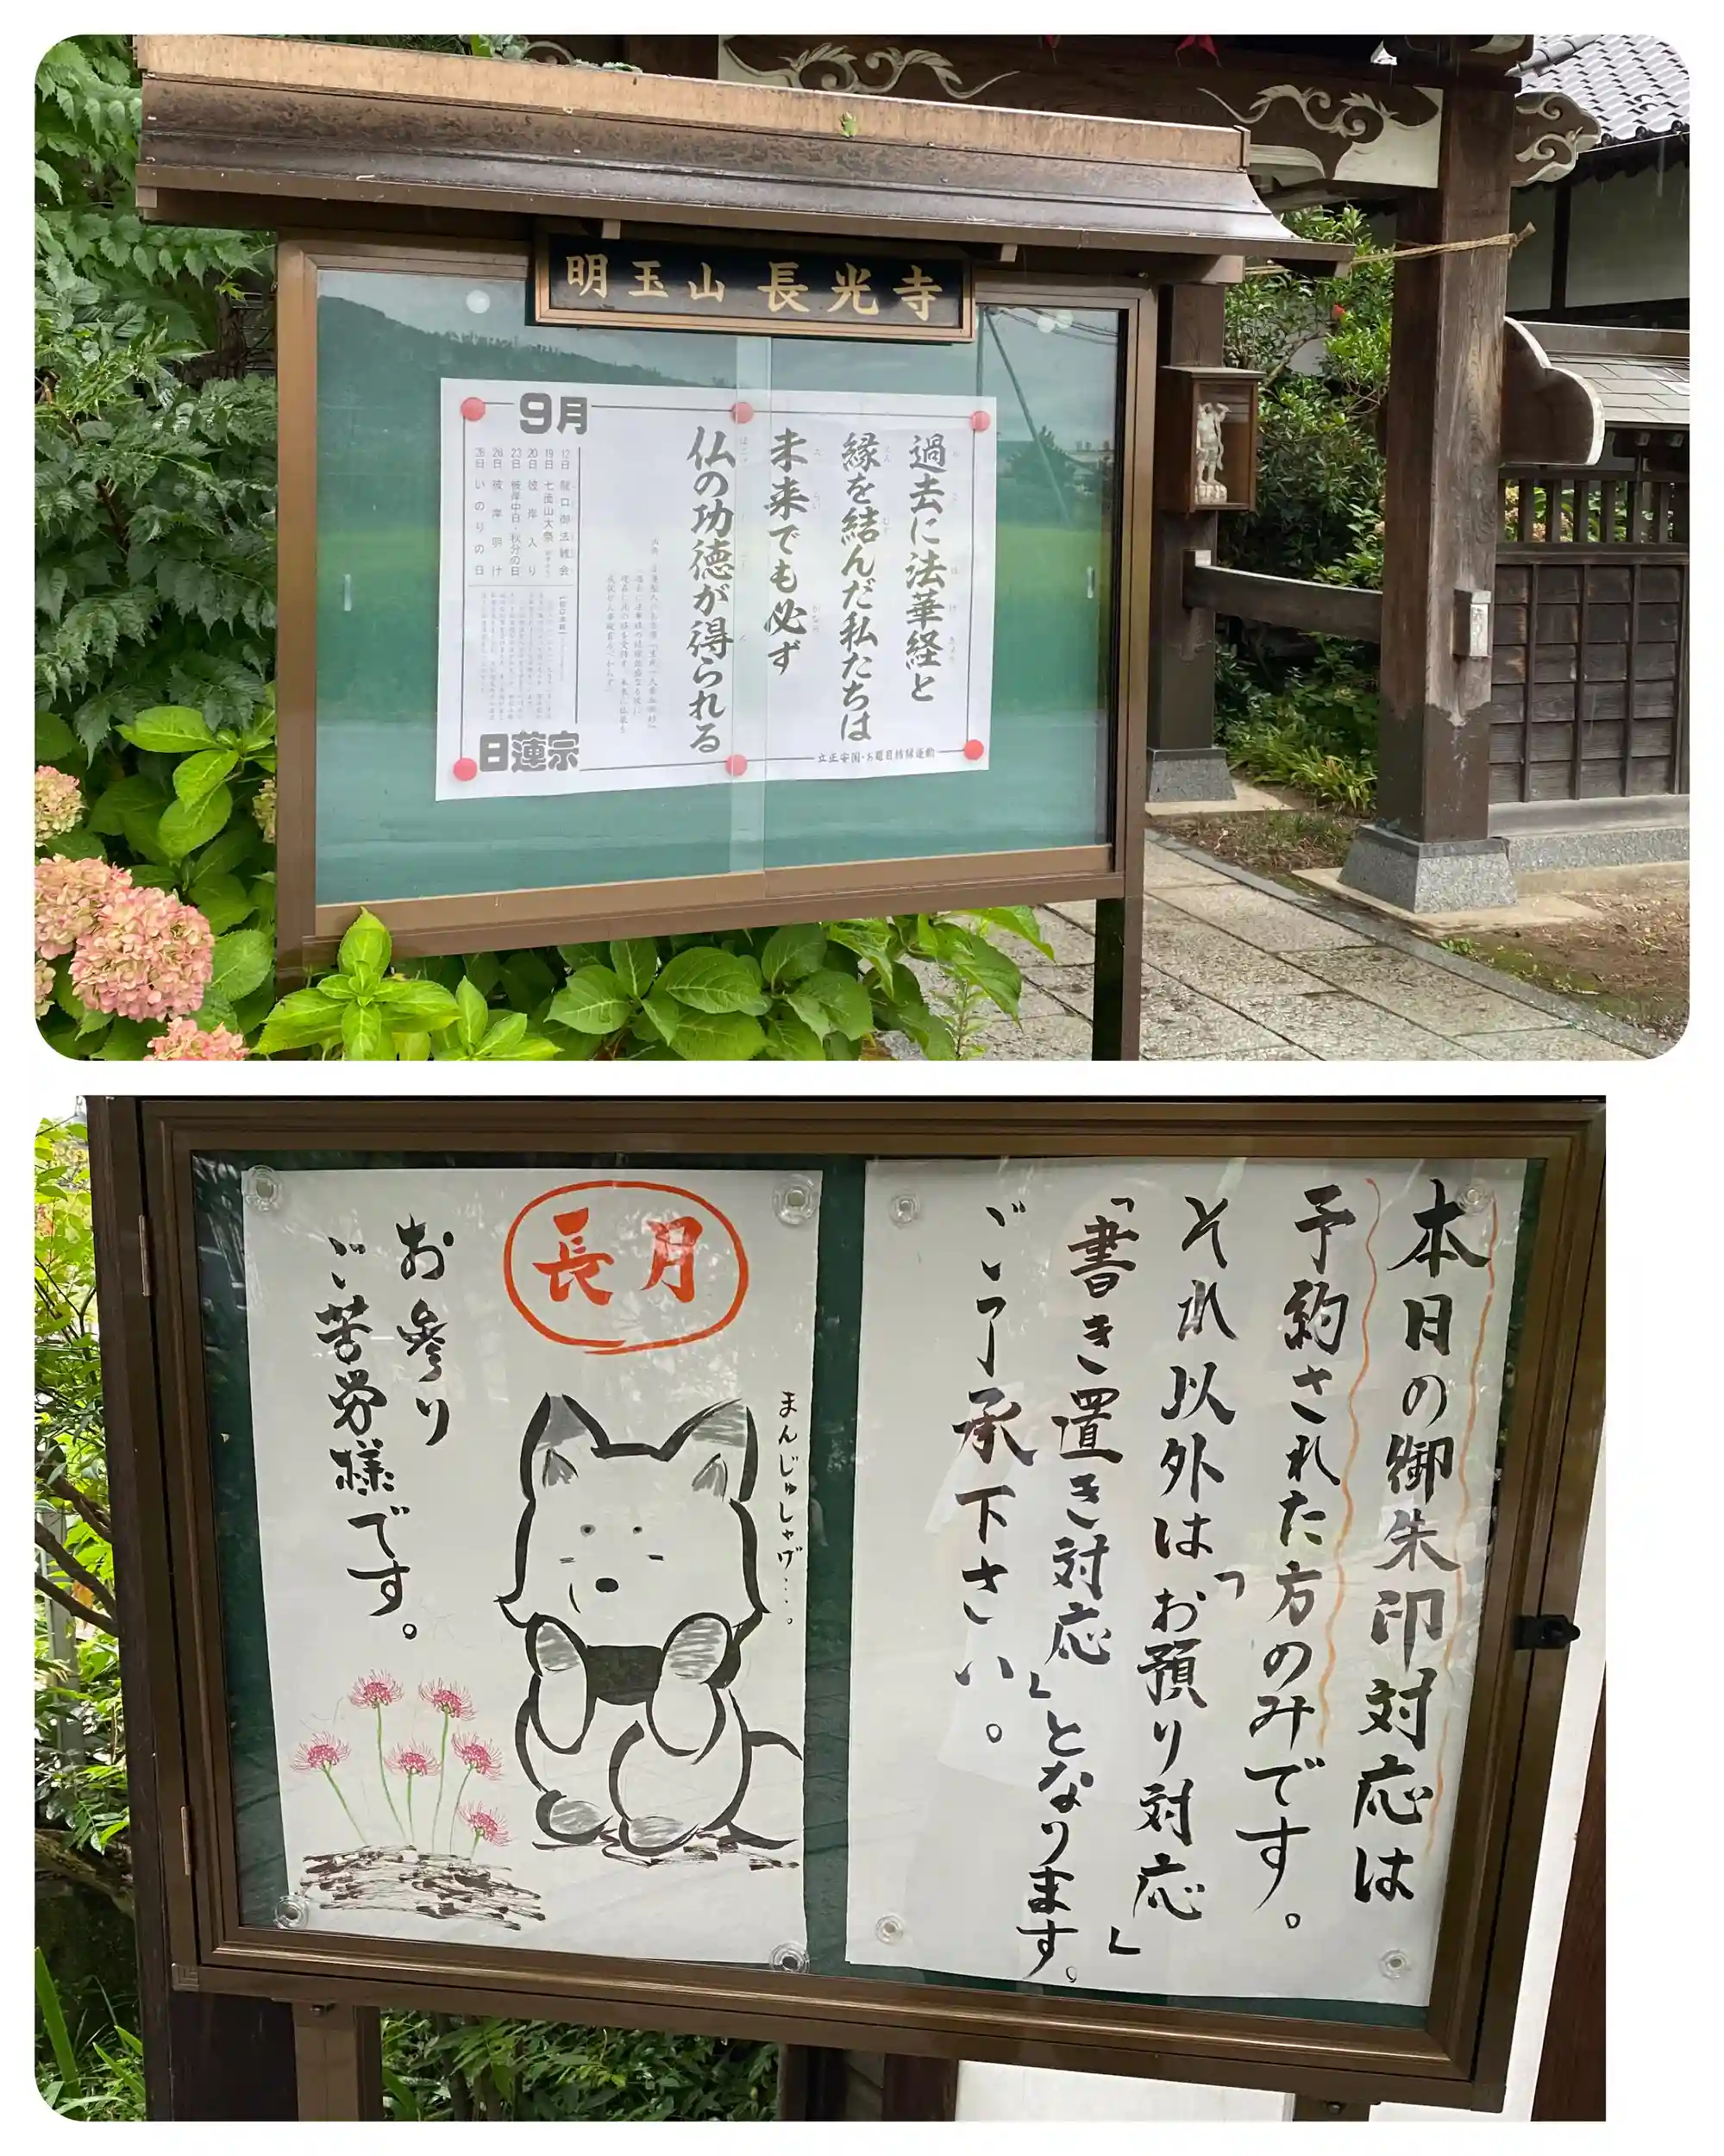 明玉山 長光寺
過去に法華経と
縁を結んだ私たちは
未来でも必ず
仏の功徳が得られる
9月
12日 龍口御法難会
19日 七面山大祭
20日 彼岸入り
23日 彼岸中日・秋分の日
26日 彼岸明け
28日 いのりの日
日蓮宗
立正安国・お題目結縁運動
本日の御朱印対応は
予約された方のみです。
それ以外は「お預り対応」
「書き置き対応」となります。
ご了承下さい。
長月
まんじゅしゃげ…。
お参り
ご苦労様です。